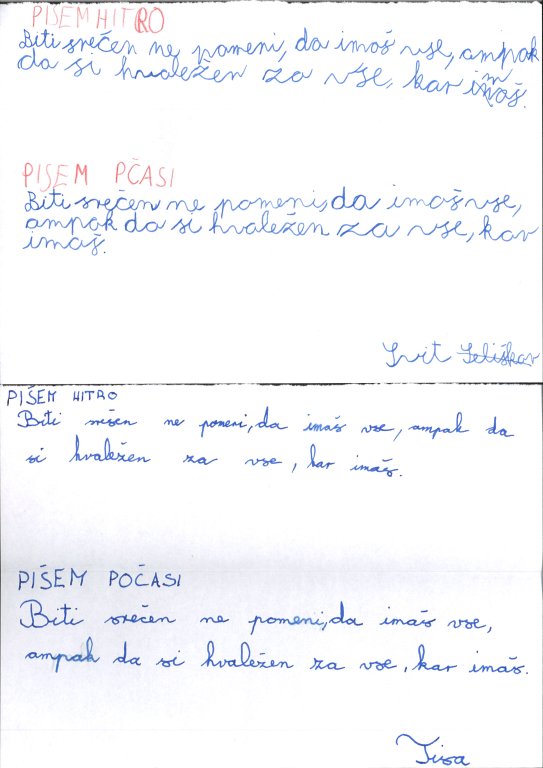 PISEM HITRO
Biti srečen ne pomeni, da imaš vse, ampak
da si hvaležen za vse, kar imaš.
PISEM PČASI
Biti srečen ne pomeni, da imaš vse,
ampak da si hvaležen za vse, kar
imaš.
Svit Seliškar
PIŠEM HITRO
Biti srečen ne pomeni, da imaš vse, ampak da
si hvaležen za vse, kar imaš.
PIŠEM POČASI
Biti srečen ne pomeni, da imaš vse,
ampak da si hvaležen za vse, kar imaš.
Tisa